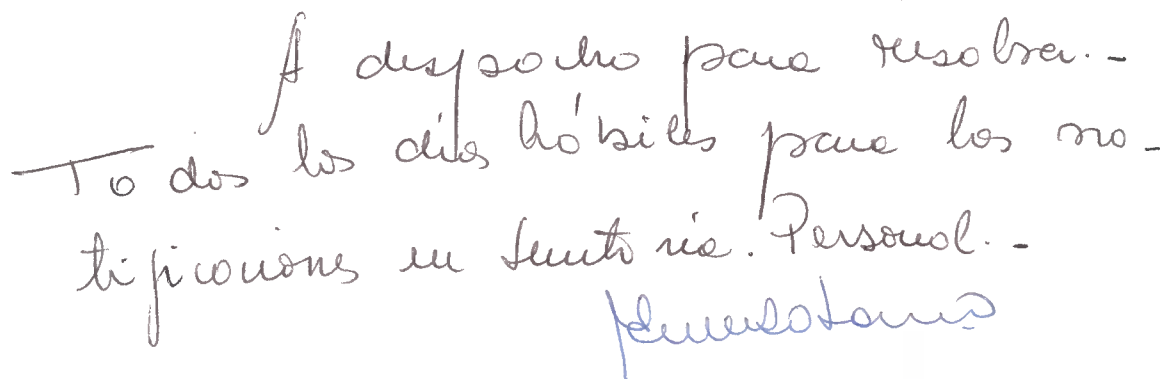 A despacho para resolver.-
Todos los días hábiles para las no-
tificaciones en Secretaría. Personal.-